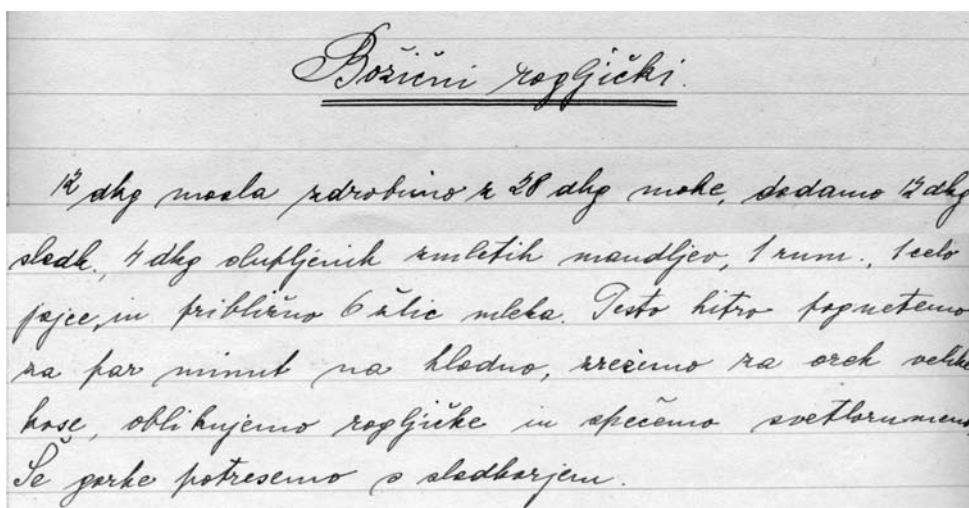 Božični rogljički.
12 dkg masla zdrobimo z 28 dkg moke, dodamo 12 dkg
sladk., 4 dkg olupljenih zmletih mandljev, 1 rum., 1 celo
jajce, in približno 6 žlic mleka. Testo hitro pognetemo
za par minut na hladno, zrežemo za oreh velike
kose, oblikujemo rogljičke in spečemo svetlorumeno.
Še gorke potresemo s sladkorjem.